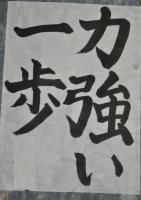 力強い
一歩